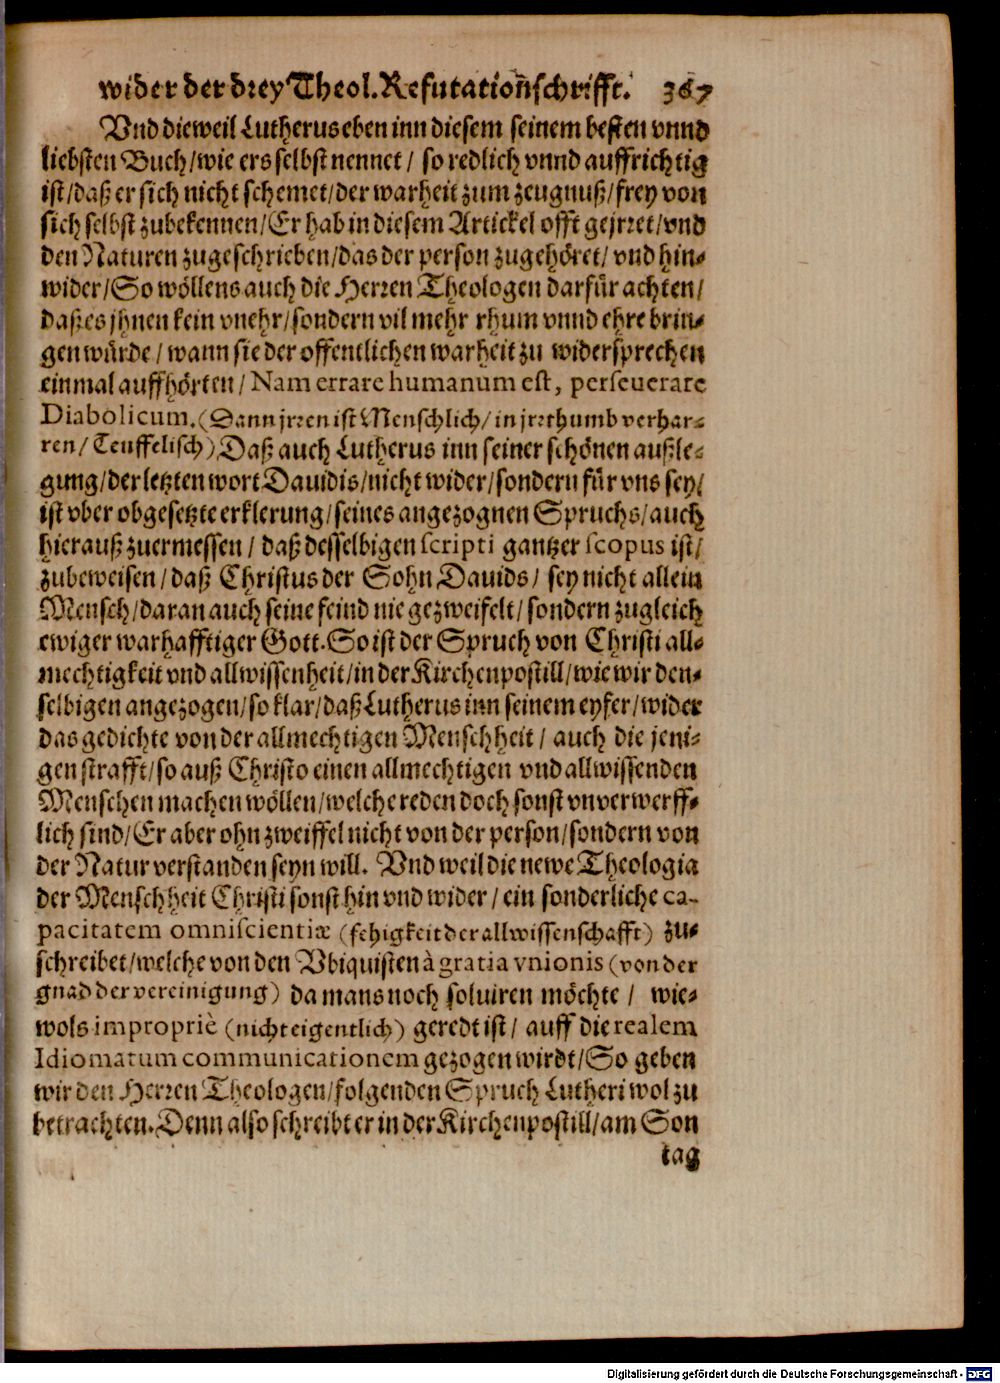 wider der drey Theol. Refutationsschrifft. 367
Vnd dieweil Lutherus eben inn diesem seinem besten vnnd
liebsten Buch/wie ers selbst nennet/ so redlich vnnd auffrichtig
ist/daß er sich nicht schemet/der warheit zum zeugnuß/frey von
sich selbst zubekennen/Er hab in diesem Artickel offt gejrret/vnd
den Naturen zugeschrieben/das der person zugehöret/ vnd hin-
wider/So wöllens auch die Herren Theologen darfür achten/
daß es jhnen kein vnehr/sondern vil mehr rhum vnnd ehre brin-
gen würde/ wann sie der offentlichen warheit zu widersprechen
einmal auffhörten/ Nam errare humanum est, perseuerare
Diabolicum. (Dann jrren ist Menschlich/ in jrrthumb verhar-
ren/ Teuffelisch) Daß auch Lutherus inn seiner schönen außle-
gung/der letzten wort Dauidis/nicht wider/sondern für vns sey/
ist vber obgesetzte erklerung/seines angezognen Spruchs/auch
hierauß zuermessen/ daß desselbigen scripti gantzer scopus ist/
zubeweisen/daß Christus der Sohn Dauids/ sey nicht allein
Mensch/daran auch seine feind nie gezweifelt/ sondern zugleich
ewiger warhafftiger Gott. So ist der Spruch von Christi all-
mechtigkeit vnd allwissenheit/in der Kirchenpostill/wie wir den-
selbigen angezogen/so klar/daß Lutherus inn seinem eyfer/wider
das gedichte von der allmechtigen Menschheit/ auch die jeni-
gen strafft/so auß Christo einen allmechtigen vnd allwissenden
Menschen machen wöllen/welche reden doch sonst vnverwerff-
lich sind/Er aber ohn zweiffel nicht von der person/sondern von
der Natur verstanden seyn will. Vnd weil die newe Theologia
der Menschheit Christi sonst hin vnd wider/ ein sonderliche ca-
pacitatem omniscientiæ (fehigkeit der allwissenschafft) zu-
schreibet/welche von den Vbiquisten à gratia vnionis (von der
gnad der vereinigung) da mans noch soluiren möchte/ wie-
wols impropriè (nicht eigentlich) geredt ist/ auff die realem
Idiomatum communicationem gezogen wirdt/So geben
wir den Herren Theologen/folgenden Spruch Lutheri wol zu
betrachten. Denn also schreibt er in der Kirchenpostill/am Son
tag
Digitalisierung gefördert durch die Deutsche Forschungsgemeinschaft - DFG